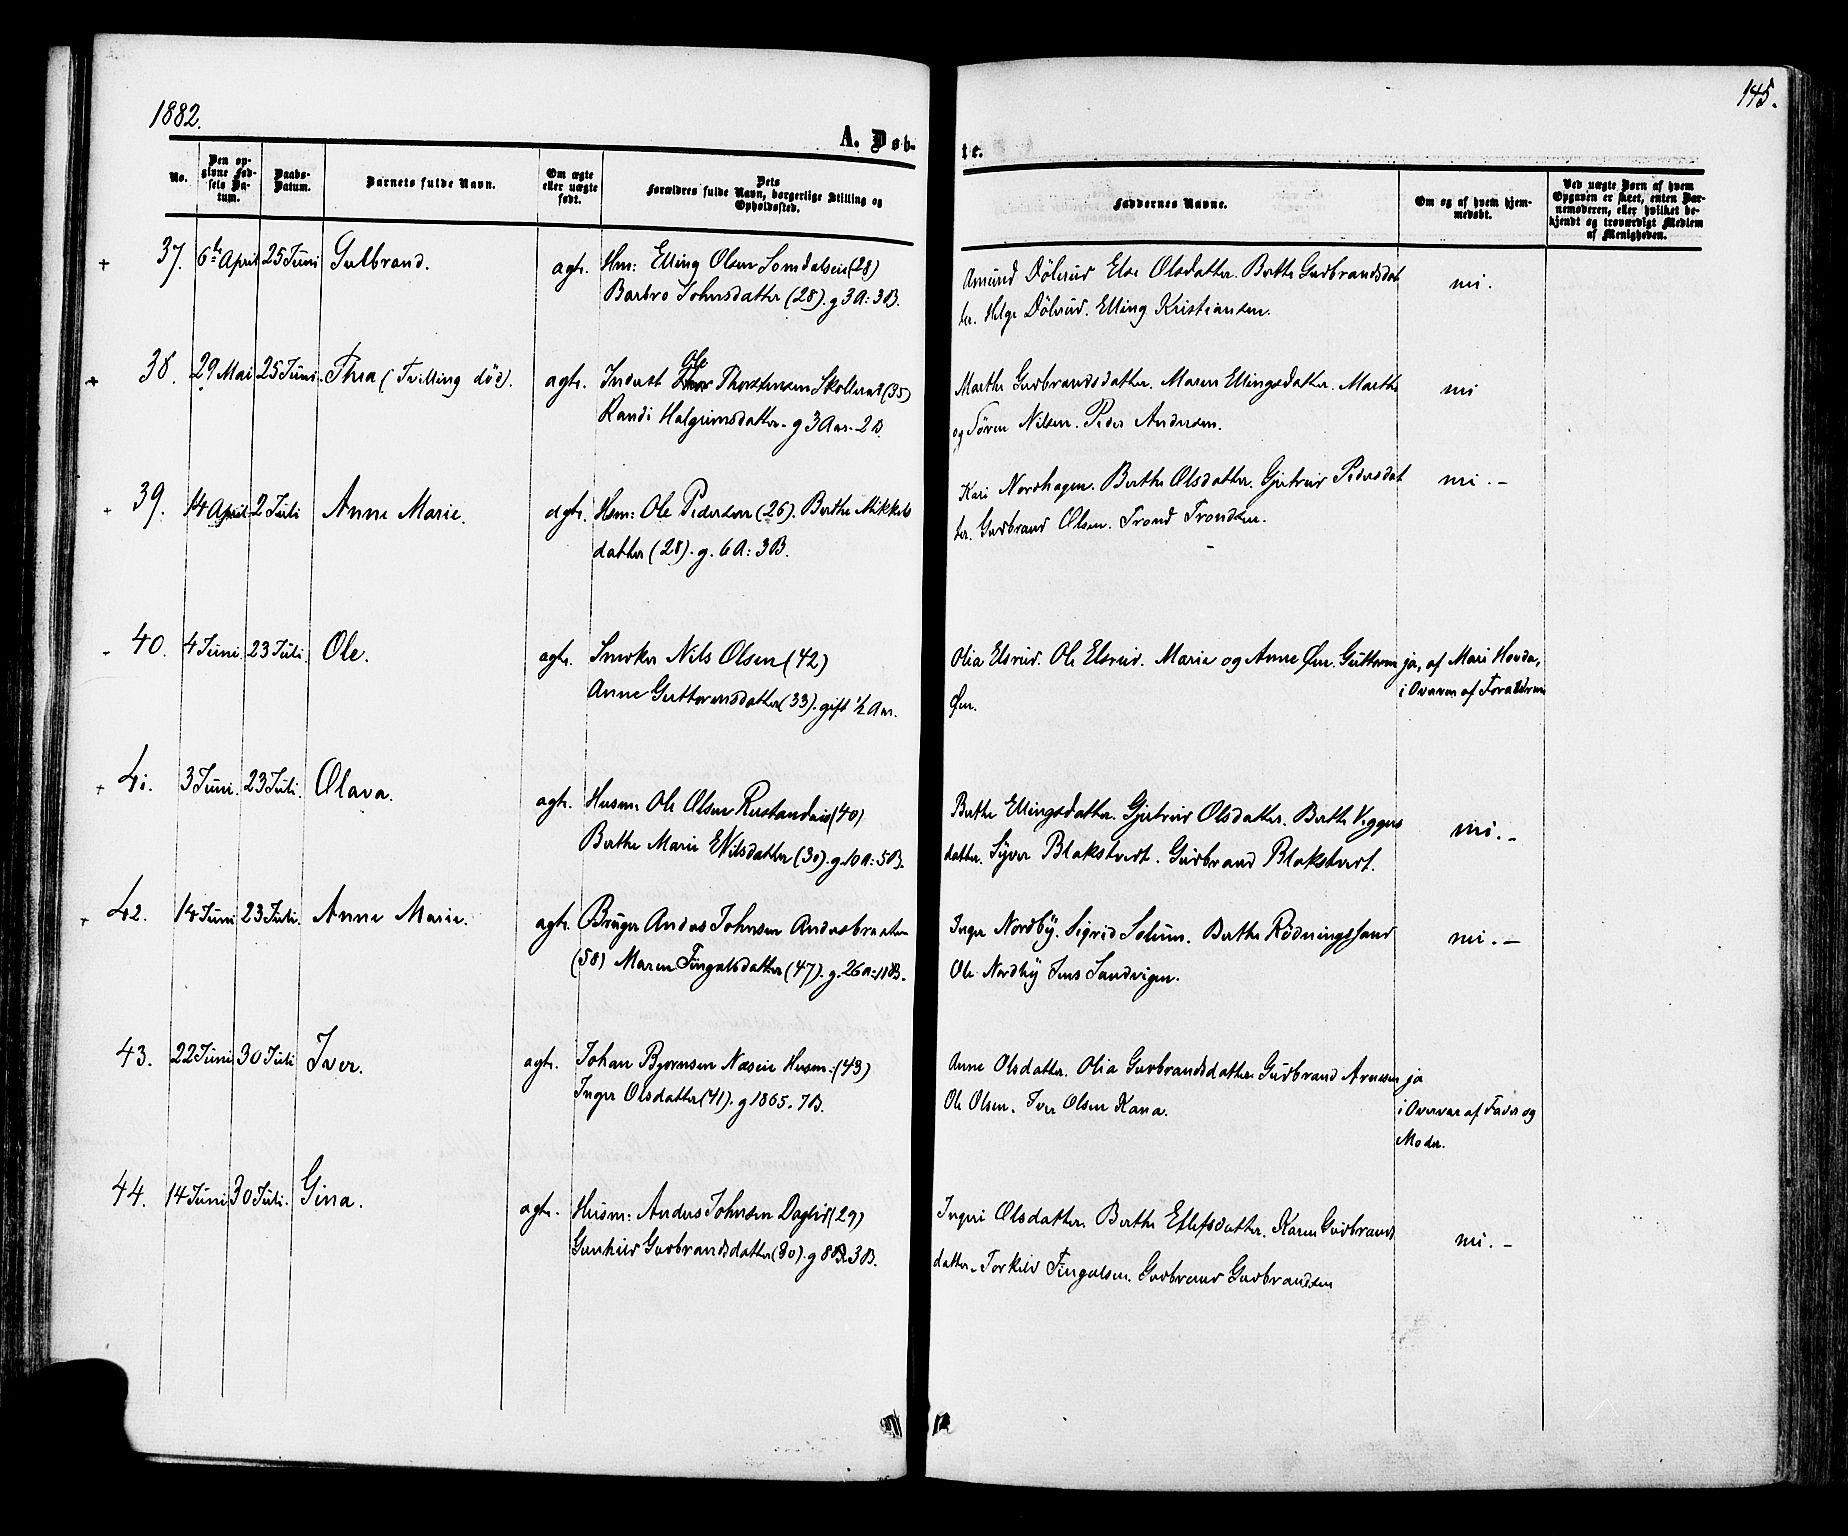 1882.
145.
A. Døb-
te.
No.
Den op-
givne Fød-
sels Da-
tum.
Daabs-
Datum.
Barnets fulde Navn.
Om ægte
eller uægte
født.
Dets
Forældres fulde Navn, borgerlige Stilling og
Opholdssted.
Faddernes Navne.
Om og af hvem hjem-
medøbt.
Ved uægte Børn af hvem
Opgaven er skeet, enten Bar-
nemoderen, eller hvilket be-
kjendt og troværdigt Medlem
af Menigheden.
+ 37. 6te April 25 Juni Gulbrand. ægte. Hm: Elling Olsen Somdalseie (28)
Barbro Johnsdatter (28). g 3 A: 3 B.
Amund Dölerud Else Olsdatter. Berthe Gudbrandsdat
ter. Helge Dölerud. Elling Kristiansen.
nei.
+ 38. 29 Mai 25 Juni. Thea (Tvilling død). ægte. Inderst Ole Thorstensen Skollerud (35)
Randi Halgrimsdatter. g 3 Aar. 2 B.
Marthe Gudbrandsdatter. Maren Ellingsdatter. Marthe
og Sören Nilsen. Peder Andersen.
nei
+ 39. 14 April 2 Juli Anne Marie. ægte. Hsm: Ole Pedersen (26). Berthe Mikkels
datter (28). g. 6 A: 3 B.
Kari Nordhagen. Berthe Olsdatter. Gjertrud Pedersdat
ter. Gudbrand Olsen. Trond Trondsen.
nei. -
- 40. 4 Juni. 23 Juli. Ole. ægte. Snedker Nils Olsen (42)
Anne Guttormsdatter (33). gift ½ Aar.
Olia Elsrud. Ole Elsrud. Marie og Anne Øen. Guttorm
Øen.
ja, af Mari Hovda,
i Overvær af Forældrene
+ 41. 3 Juni. 23 Juli. Olava. ægte. Husm: Ole Olsen Rustandeie (40)
Berthe Marie Nilsdatter (30). g. 10 A: 5 B.
Berthe Ellingsdatter. Gjertrud Olsdatter. Berthe Viggers
datter. Syver Blakstvedt. Gudbrand Blakstvedt.
nei. -
+ 42. 14 Juni 23 Juli. Anne Marie. ægte. Bruger Anders Johnsen Andersbraaten
(58) Maren Fingalsdatter (47). g. 26 A: 11 B.
Inger Nordby. Sigrid Solum. Berthe Rödningssand
Ole Nordby Jens Sandvigen.
nei. -
43. 22 Juni. 30 Juli Iver. ægte. Johan Bjørnsen Næseie Husm: (43)
Inger Olsdatter (41). g 1865. 7 B.
Anne Olsdatter. Olia Gudbrandsdatter. Gudbrand Arnesen
Ole Olsen. Iver Olsen Kana.
ja
i Overvær af Fader og
Moder.
44. 14 Juni 30 Juli. Gina. ægte. Husm: Anders Johnsen Daglid (29)
Gunhild Gudbrandsdatter (30). g 8 A. 3 B.
Ingeri Olsdatter. Berthe Ellefsdatter. Karen Gudbrands
datter. Torkild Fingalsen. Gudbrand Gudbrandsen
nei. -